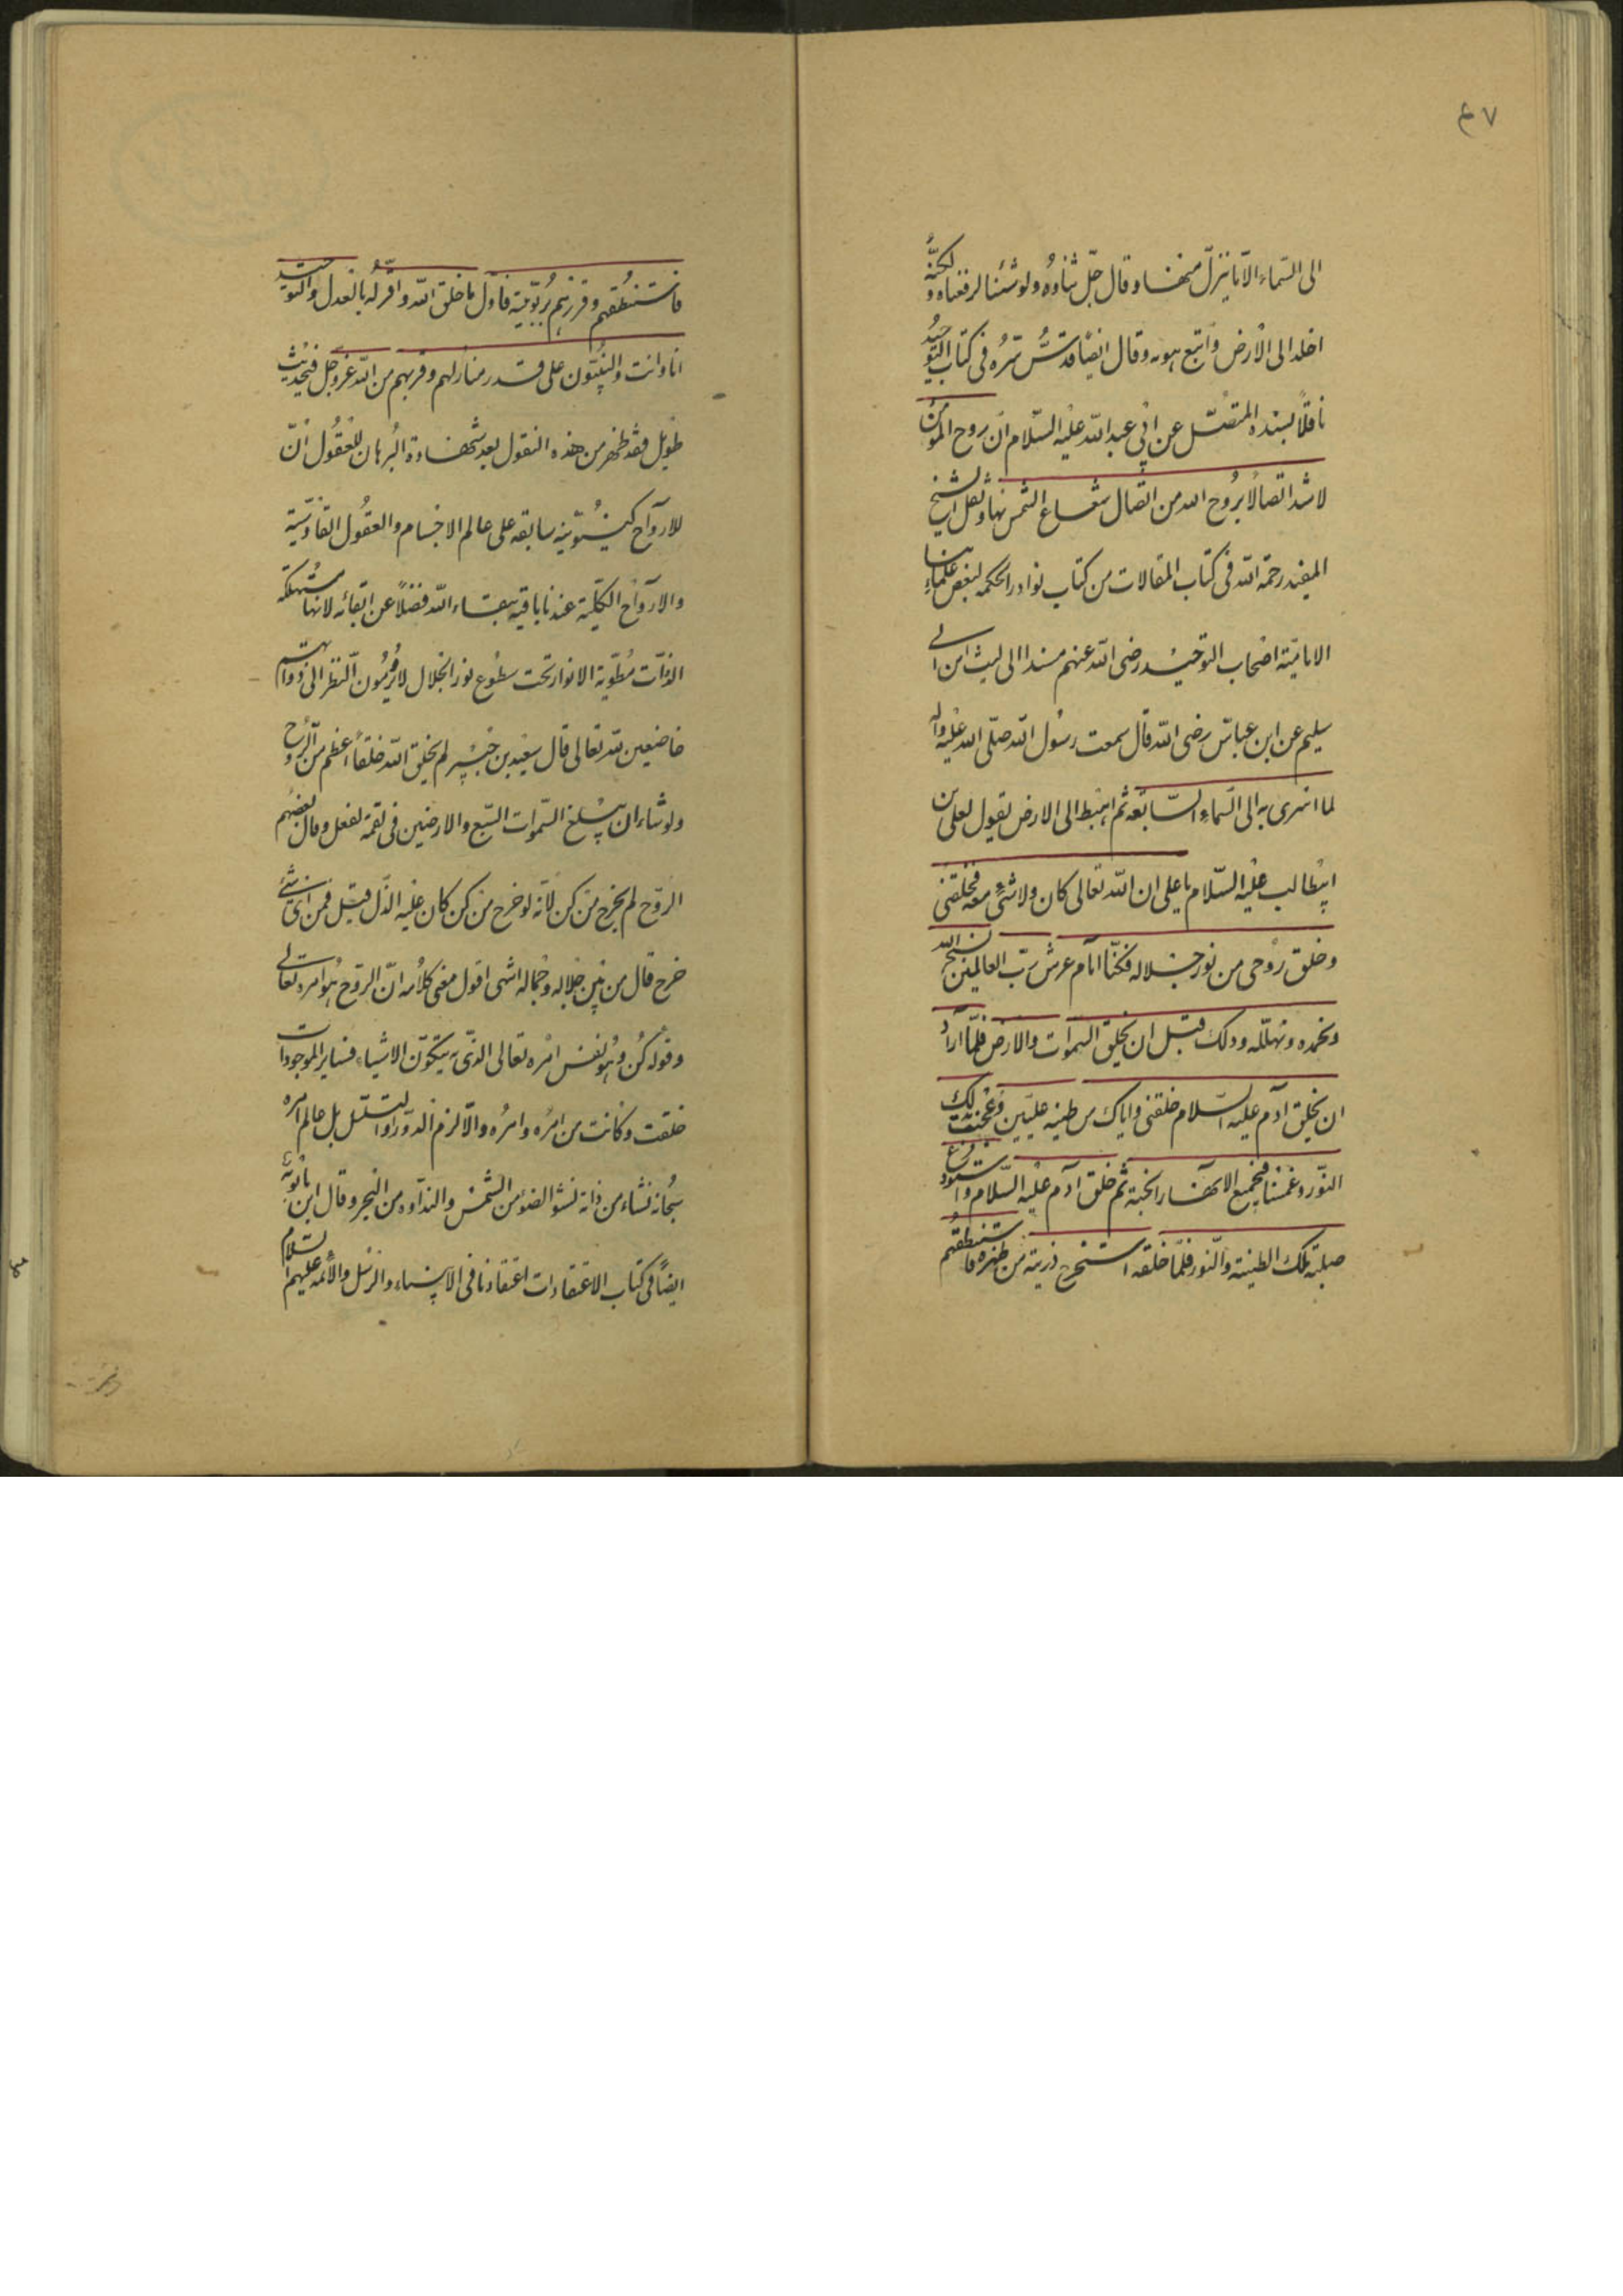 ٤٧
الى السماء الا ما ينزل منها وقال جل ثناؤه ولو شئنا لرفعناه ولكنه
اخلد الى الارض واتبع هويه وقال ايضا قدس سره فى كتاب التوحيد
ناقلا بسنده المتصل عن ابى عبد الله عليه السلام ان روح المؤمن
لاشد اتصالا بروح الله من اتصال شعاع الشمس بها ونقل الشيخ
المفيد رحمة الله فى كتاب المقالات من كتاب نوادر الحكمه لبعض علمائنا
الامامية اصحاب التوحيد رضى الله عنهم مسندا الى ليث ابن ابى
سليم عن ابن عباس رضى الله قال سمعت رسول الله صلى الله عليه واله
لما اسرى به الى السماء السابعه ثم اهبط الى الارض يقول لعلى بن
ابيطالب عليه السلام يا على ان الله تعالى كان ولا شئ معه فخلقنى
وخلق روحى من نور جلاله فكنا امام عرش رب العالمين نسبح الله
ونحمده ونهلله وذلك قبل ان يخلق السموات والارض فلما اراد
ان يخلق آدم عليه السلام خلقنى واياك من طينه عليين وعجنت بذلك
النور وغمسنا فى جميع الانهار الجنة ثم خلق آدم عليه السلام واستودع
صلبه تلك الطينة والنور فلما خلقه استخرج ذريته من ظهره فاستنطقهم
فاستنطقهم وقررهم بربوبية فاول ما خلق الله واقر له بالعدل والتوحيد
انا وانت والنبيون على قدر منازلهم وقربهم من الله عز وجل فى حديث
طويل فقد ظهر من هذه النقول بعد شهادة البرهان للعقول ان
للارواح كينونية سابقه على عالم الاجسام والعقول القادسية
والارواح الكلية عندنا باقية ببقاء الله فضلا عن ابقائه لانها مستهلكه
الذات مطوية الانوار تحت سطوع نور الجلال لا يرومون النظر الى ذواتهم
خاضعين لله تعالى قال سعيد بن جبير لم يخلق الله خلقا اعظم من الروح
ولو شاء ان يبلغ السموات السبع والارضين فى لقمة لفعل وقال بعضهم
الروح لم يخرج من كن لانه لو خرج من كن كان عليه الذل قيل فمن اى شئ
خرج قال من بين جلاله وجماله انتهى اقول معنى كلامه ان الروح هو امره تعالى
وقوله كن وهو نفس امره تعالى الذى به يتكون الاشياء فساير الموجودات
خلقت وكانت من امره وامره والا لزم الدور او التسلسل بل عالم امره
سبحانه نشاء من ذاته نشو الضوء من الشمس والنداوه من البحر وقال ابن بابويه
ايضا فى كتاب الاعتقادات اعتقادنا فى الانبياء والرسل والائمه عليهم السلام